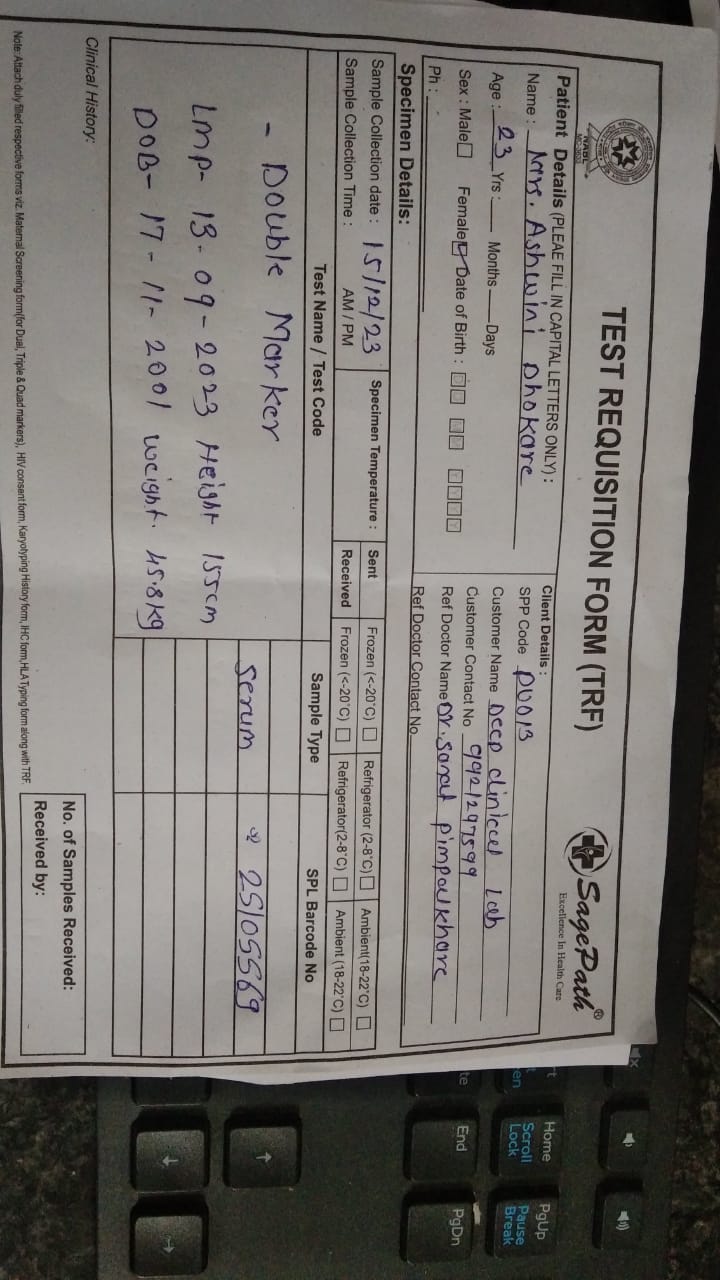 NABL
TEST REQUISITION FORM (TRF)
SagePath®
Excellence In Health Care
Patient Details (PLEAE FILL IN CAPITAL LETTERS ONLY) :
Name : Mrs. Ashwini Dhokare
Age : 23 Yrs : Months Days
Sex : Male Female Date of Birth : D D M M Y Y Y Y
Ph :
Client Details :
SPP Code PU013
Customer Name Deep clinical Lab
Customer Contact No 9921297599
Ref Doctor Name Dr. Sarat Pimpalkhare
Ref Doctor Contact No
Specimen Details:
Sample Collection date : 15/12/23 Specimen Temperature : Sent Frozen (<-20°C) Refrigerator (2-8°C) Ambient(18-22°C)
Sample Collection Time : AM / PM Received Frozen (<-20°C) Refrigerator(2-8°C) Ambient (18-22°C)
Test Name / Test Code Sample Type SPL Barcode No
- Double Marker serum 25105569
LMP- 13-09-2023 Height 155cm
DOB- 17-11-2001 weight. 45.8 kg
Clinical History:
No. of Samples Received:
Received by:
Note: Attach duly filled respective forms viz. Maternal Screening form(for Dual, Triple & Quad markers), HIV consent form, Karyotyping History form, IHC form, HLA Typing form along with TRF.
Home
PgUp
Scroll Lock
Pause Break
End
PgDn